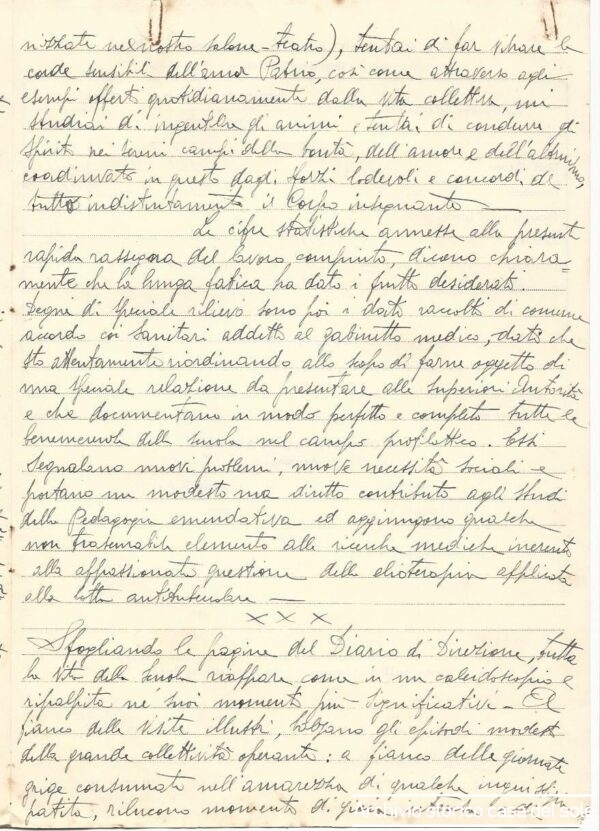 nizzate nel nostro salone-teatro), tentai di far vibrare le
corde sensibili dell'amor Patrio, così come attraverso agli
esempi offerti quotidianamente dalla vita collettiva, mi
studiai di ingentilire gli animi e tentai di condurre gli
spiriti nei sereni campi della bontà, dell'amore e dell'altruismo,
coadiuvato in questo dagli sforzi lodevoli e concordi di
tutto indistintamente il Corpo insegnante —
Le cifre statistiche annesse alla presente
rapida rassegna del lavoro compiuto, dicono chiara=
mente che la lunga fatica ha dato i frutti desiderati.
Degni di speciale rilievo sono poi i dati raccolti di comune
accordo coi Sanitari addetti al gabinetto medico, dati che
sto attentamente riordinando allo scopo di farne oggetto di
una speciale relazione da presentare alle Superiori Autorità
e che documentano in modo perfetto e completo tutte le
benemerenze della scuola nel campo profilattico. Essi
segnalano nuovi problemi, nuove necessità sociali e
portano un modesto ma diretto contributo agli studi
della Pedagogia emendativa ed aggiungono qualche
non trascurabile elemento alle ricerche mediche inerenti
alla appassionata questione della elioterapia applicata
alla lotta antitubercolare —
x x x
Sfogliando le pagine del Diario di Direzione, tutta
la vita della Scuola riappare come in un caleidoscopio e
ripalpita ne' suoi momenti più significativi — Al
fianco delle visite illustri, balzano gli episodi modesti
della grande collettività operante: a fianco delle giornate
grige consumate nell'amarezza di qualche ingiustizia
patita, rilucono momenti di
Archivio storico casa del sole